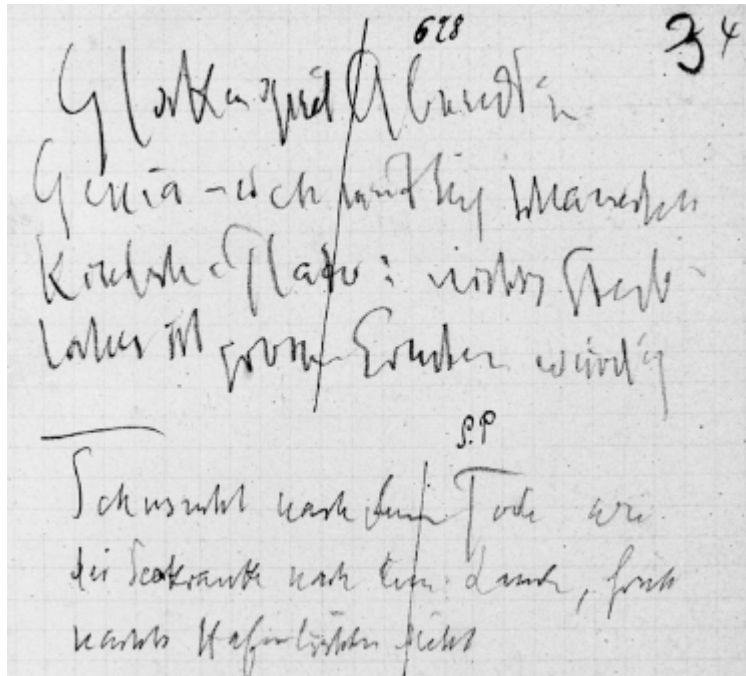 628
34
Glockenspiel Abends in
Genua - wehmüthig schauerlich
kindisch. Plato: nichts Sterb-
liches ist grossen Ernstes würdig
S.P
Sehnsucht nach dem Tode wie
der Seekranke nach dem Lande,
nachts Hafenlichter sieht